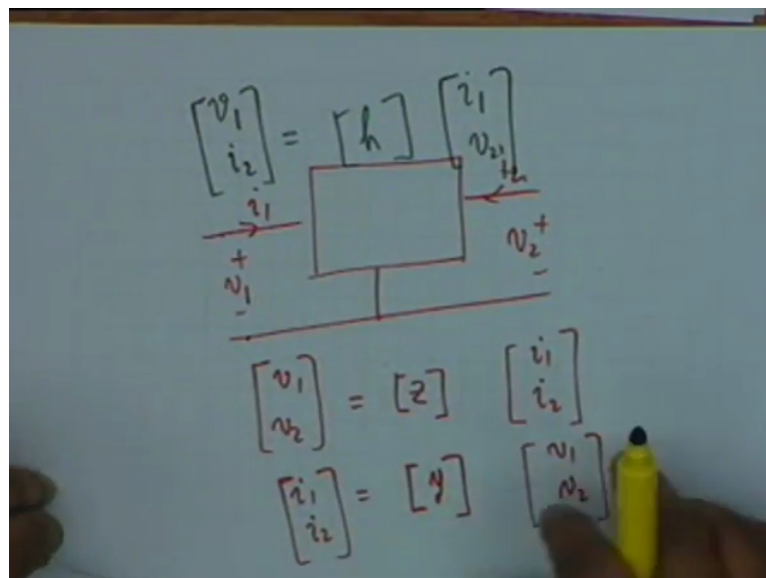 [v1 i2] = [h] [i1 v2]
i1 i2
+ v1 - v2 + -
[v1 v2] = [z] [i1 i2]
[i1 i2] = [y] [v1 v2]